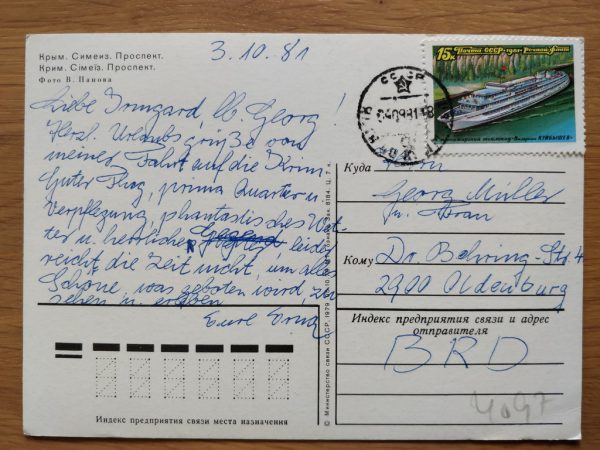 3.10.81
Крым. Симеиз. Проспект.
Крим. Сімеїз. Проспект.
Фото В. Панова
Liebe Irmgard, lb. Georg!
Herzl. Urlaubsgrüße von
meiner Fahrt auf die Krim
Guter Flug, prima Quartier u.
Verpflegung, phantastisches Wet-
ter u. herrliche Gegend, leider
reicht die Zeit nicht, um alles
Schöne, was geboten wird, zu
sehen u. erleben
Eure
Индекс предприятия связи места назначения
© Министерство связи СССР. 1979
Зак. 8184. Ц. 7 к.
15к Почта СССР·1981 Речной флот
СССР
Куда
Georg Müller
u. Frau
Кому Dr. Behring-Str. 4
2900 Oldenburg
Индекс предприятия связи и адрес
отправителя
BRD